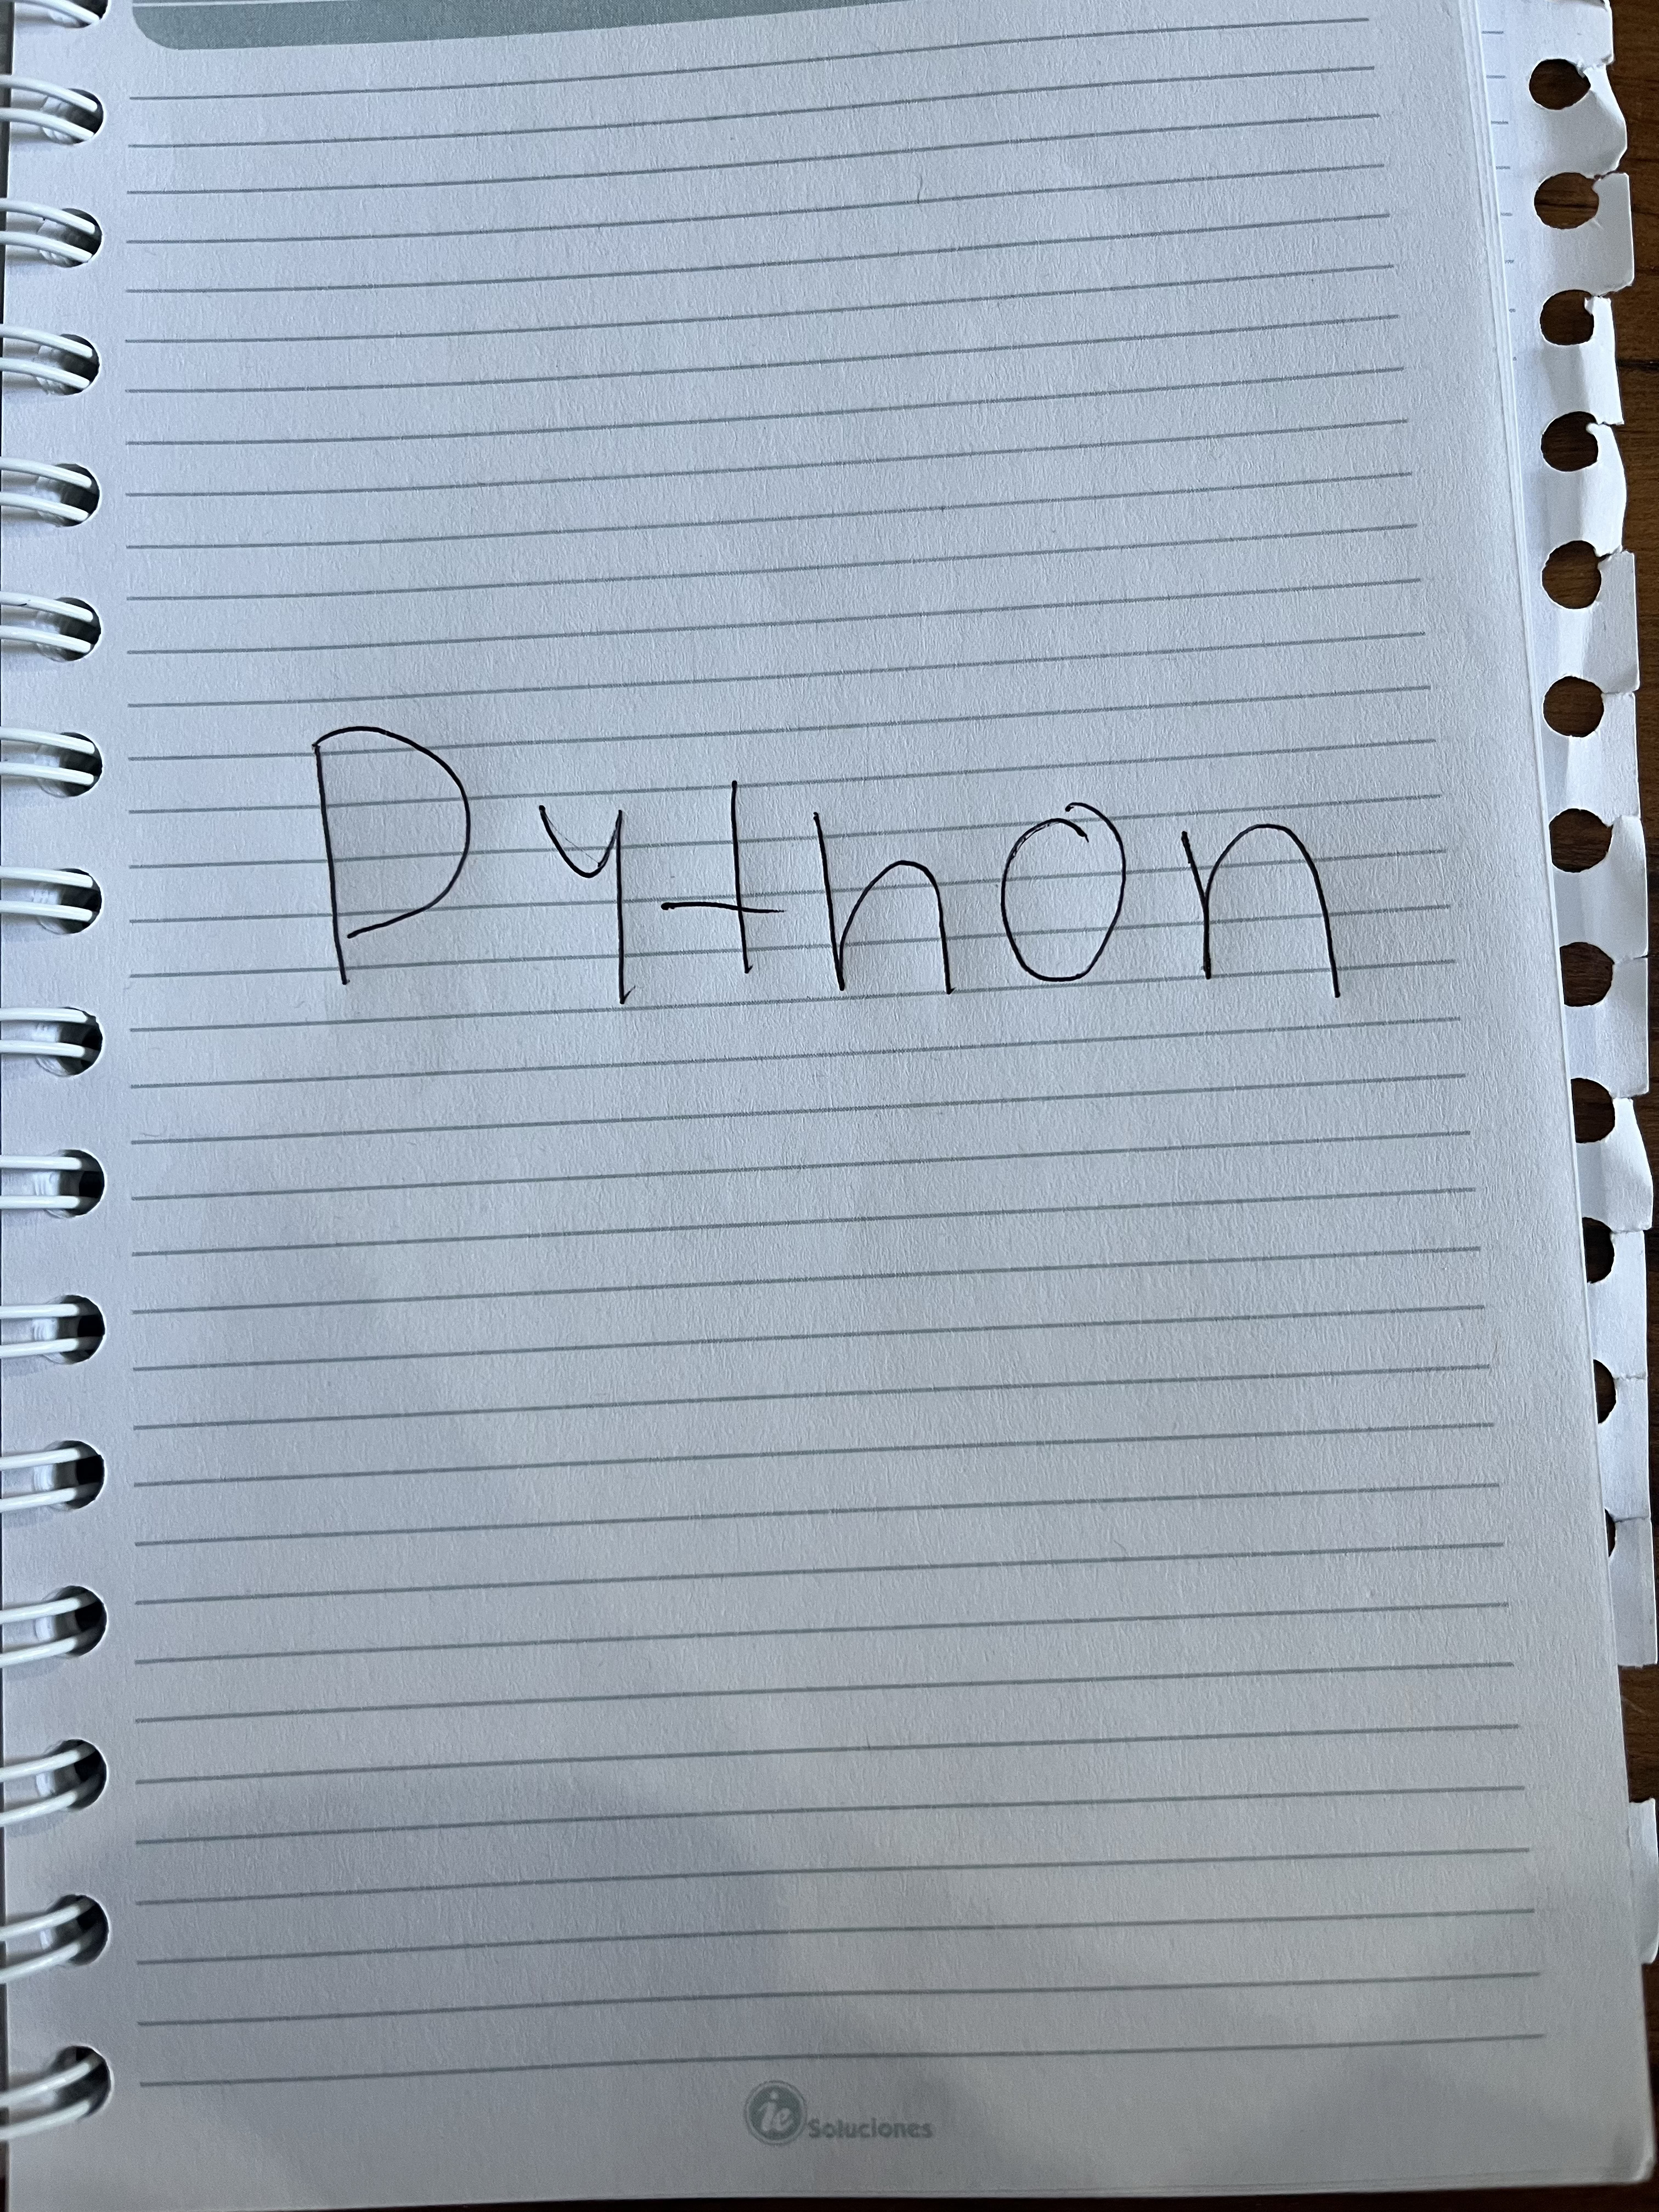 Python
ie Soluciones